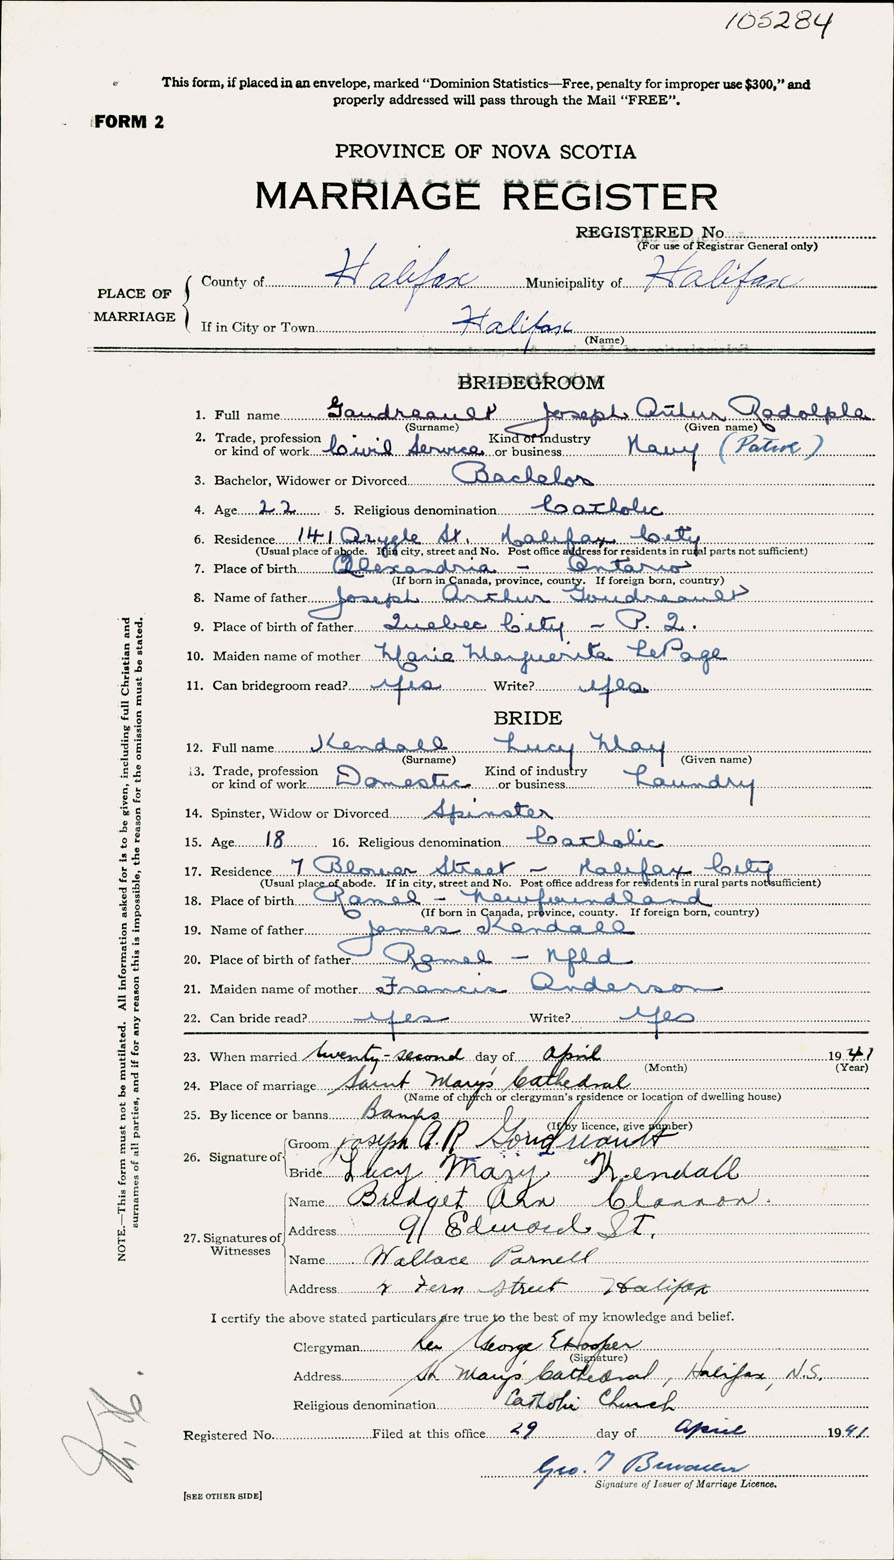 105284
This form, if placed in an envelope, marked “Dominion Statistics—Free, penalty for improper use $300,” and
properly addressed will pass through the Mail “FREE”.
FORM 2
PROVINCE OF NOVA SCOTIA
MARRIAGE REGISTER
REGISTERED No.
(For use of Registrar General only)
PLACE OF MARRIAGE
County of Halifax Municipality of Halifax
If in City or Town Halifax
(Name)
BRIDEGROOM
1. Full name Gaudreault Joseph Arthur Rodolphe
(Surname) (Given name)
2. Trade, profession or kind of work Civil Service Kind of industry or business Navy (Patrol)
3. Bachelor, Widower or Divorced Bachelor
4. Age 22 5. Religious denomination Catholic
6. Residence 141 Argyle St. Halifax City
(Usual place of abode. If in city, street and No. Post office address for residents in rural parts not sufficient)
7. Place of birth Alexandria - Ontario
(If born in Canada, province, county. If foreign born, country)
8. Name of father Joseph Arthur Goudreault
9. Place of birth of father Quebec City - P. Q.
10. Maiden name of mother Marie Marguerite LePage
11. Can bridegroom read? yes Write? yes
BRIDE
12. Full name Kendall Lucy May
(Surname) (Given name)
13. Trade, profession or kind of work Domestic Kind of industry or business Laundry
14. Spinster, Widow or Divorced Spinster
15. Age 18 16. Religious denomination Catholic
17. Residence 7 Blower Street - Halifax City
(Usual place of abode. If in city, street and No. Post office address for residents in rural parts not sufficient)
18. Place of birth Ramel - Newfoundland
(If born in Canada, province, county. If foreign born, country)
19. Name of father James Kendall
20. Place of birth of father Ramel - Nfld
21. Maiden name of mother Francis Anderson
22. Can bride read? yes Write? yes
23. When married twenty-second day of April 1941
(Month) (Year)
24. Place of marriage Saint Mary's Cathedral
(Name of church or clergyman's residence or location of dwelling house)
25. By licence or banns Banns
(If by licence, give number)
26. Signature of
Groom Joseph A.R Goudreault
Bride Lucy May Kendall
27. Signatures of Witnesses
Name Bridget Ann Clannon.
Address 91 Edward St.
Name Wallace Parnell
Address Fern Street Halifax
I certify the above stated particulars are true to the best of my knowledge and belief.
Clergyman Rev George E Hooper
(Signature)
Address St Mary's Cathedral, Halifax, N.S.
Religious denomination Catholic Church
Registered No. Filed at this office 29 day of April 1941
Geo. T
Signature of Issuer of Marriage Licence.
[SEE OTHER SIDE]
NOTE.—This form must not be mutilated. All information asked for is to be given, including full Christian and
surnames of all parties, and if for any reason this is impossible, the reason for the omission must be stated.